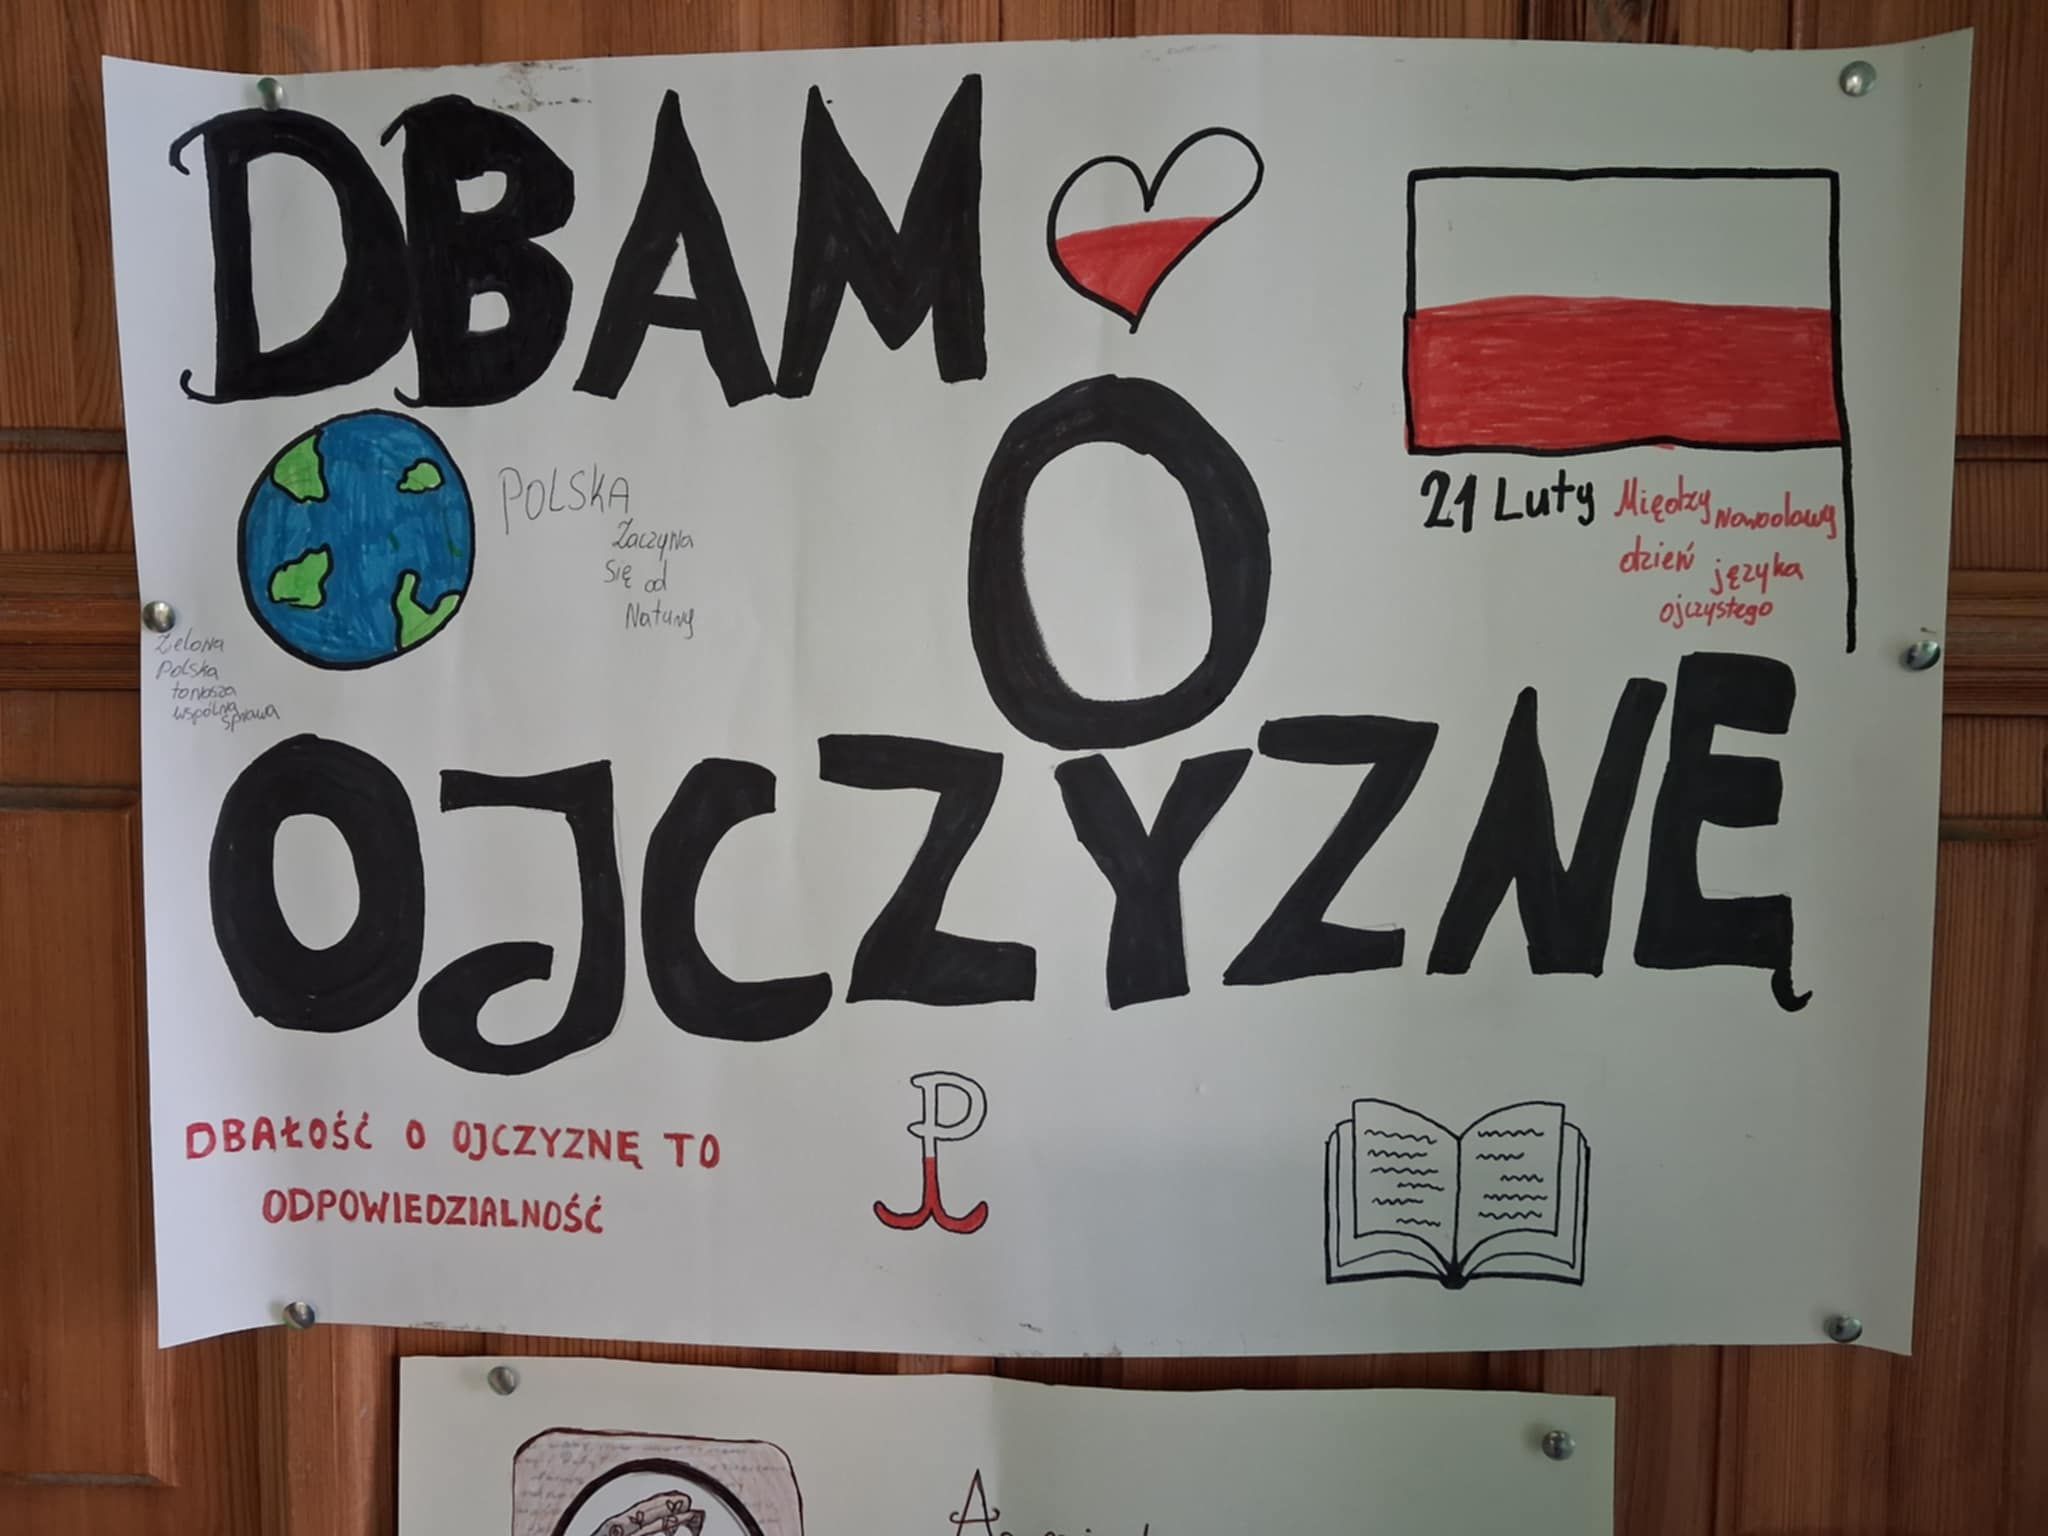 DBAM
O
OJCZYZNĘ
21 Luty Między Narodowy
dzień języka
ojczystego
POLSKA
Zaczyna
się od
Natury
Zielona
Polska
to nasza
wspólna
sprawa
DBAŁOŚĆ O OJCZYZNĘ TO
ODPOWIEDZIALNOŚĆ
P